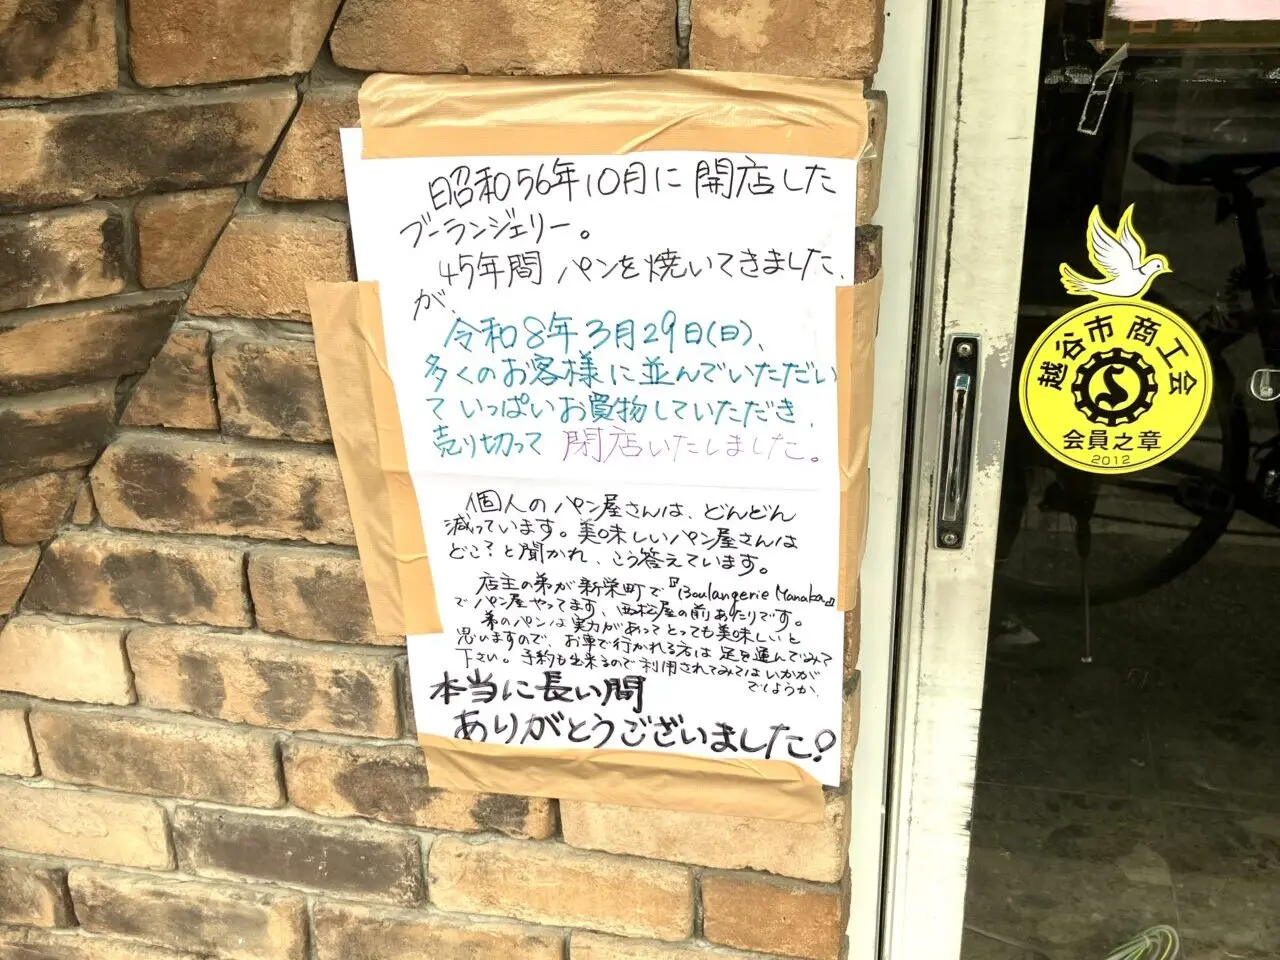 昭和56年10月に開店した
ブーランジェリー。
45年間 パンを焼いてきました、
が、
令和8年3月29日(日)、
多くのお客様に並んでいただい
ていっぱいお買物していただき、
売り切って閉店いたしました。
個人のパン屋さんは、どんどん
減っています。美味しいパン屋さんは
どこ?と聞かれ、こう答えています。
店主の弟が新栄町で『Boulangerie Manaka』
でパン屋やってます、西松屋の前あたりです。
弟のパンは実力があってとっても美味しいと
思いますので、お車で行かれる方は足を運んでみて
下さい。予約も出来るので利用されてみてはいかがが
でしょうか、
本当に長い間
ありがとうございました!
越谷市商工会
会員之章
2012